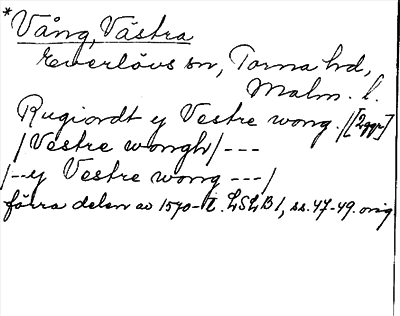 * Vång, Västra
Everlövs sn, Torna hd,
Malm. l.
Rugiordt y Vestre wong. /[2ggr]
/Vestre wongh/ ---
/--y Vestre wong ---/
förra delen av 1570-t. LSLB 1, ss. 47-49. orig